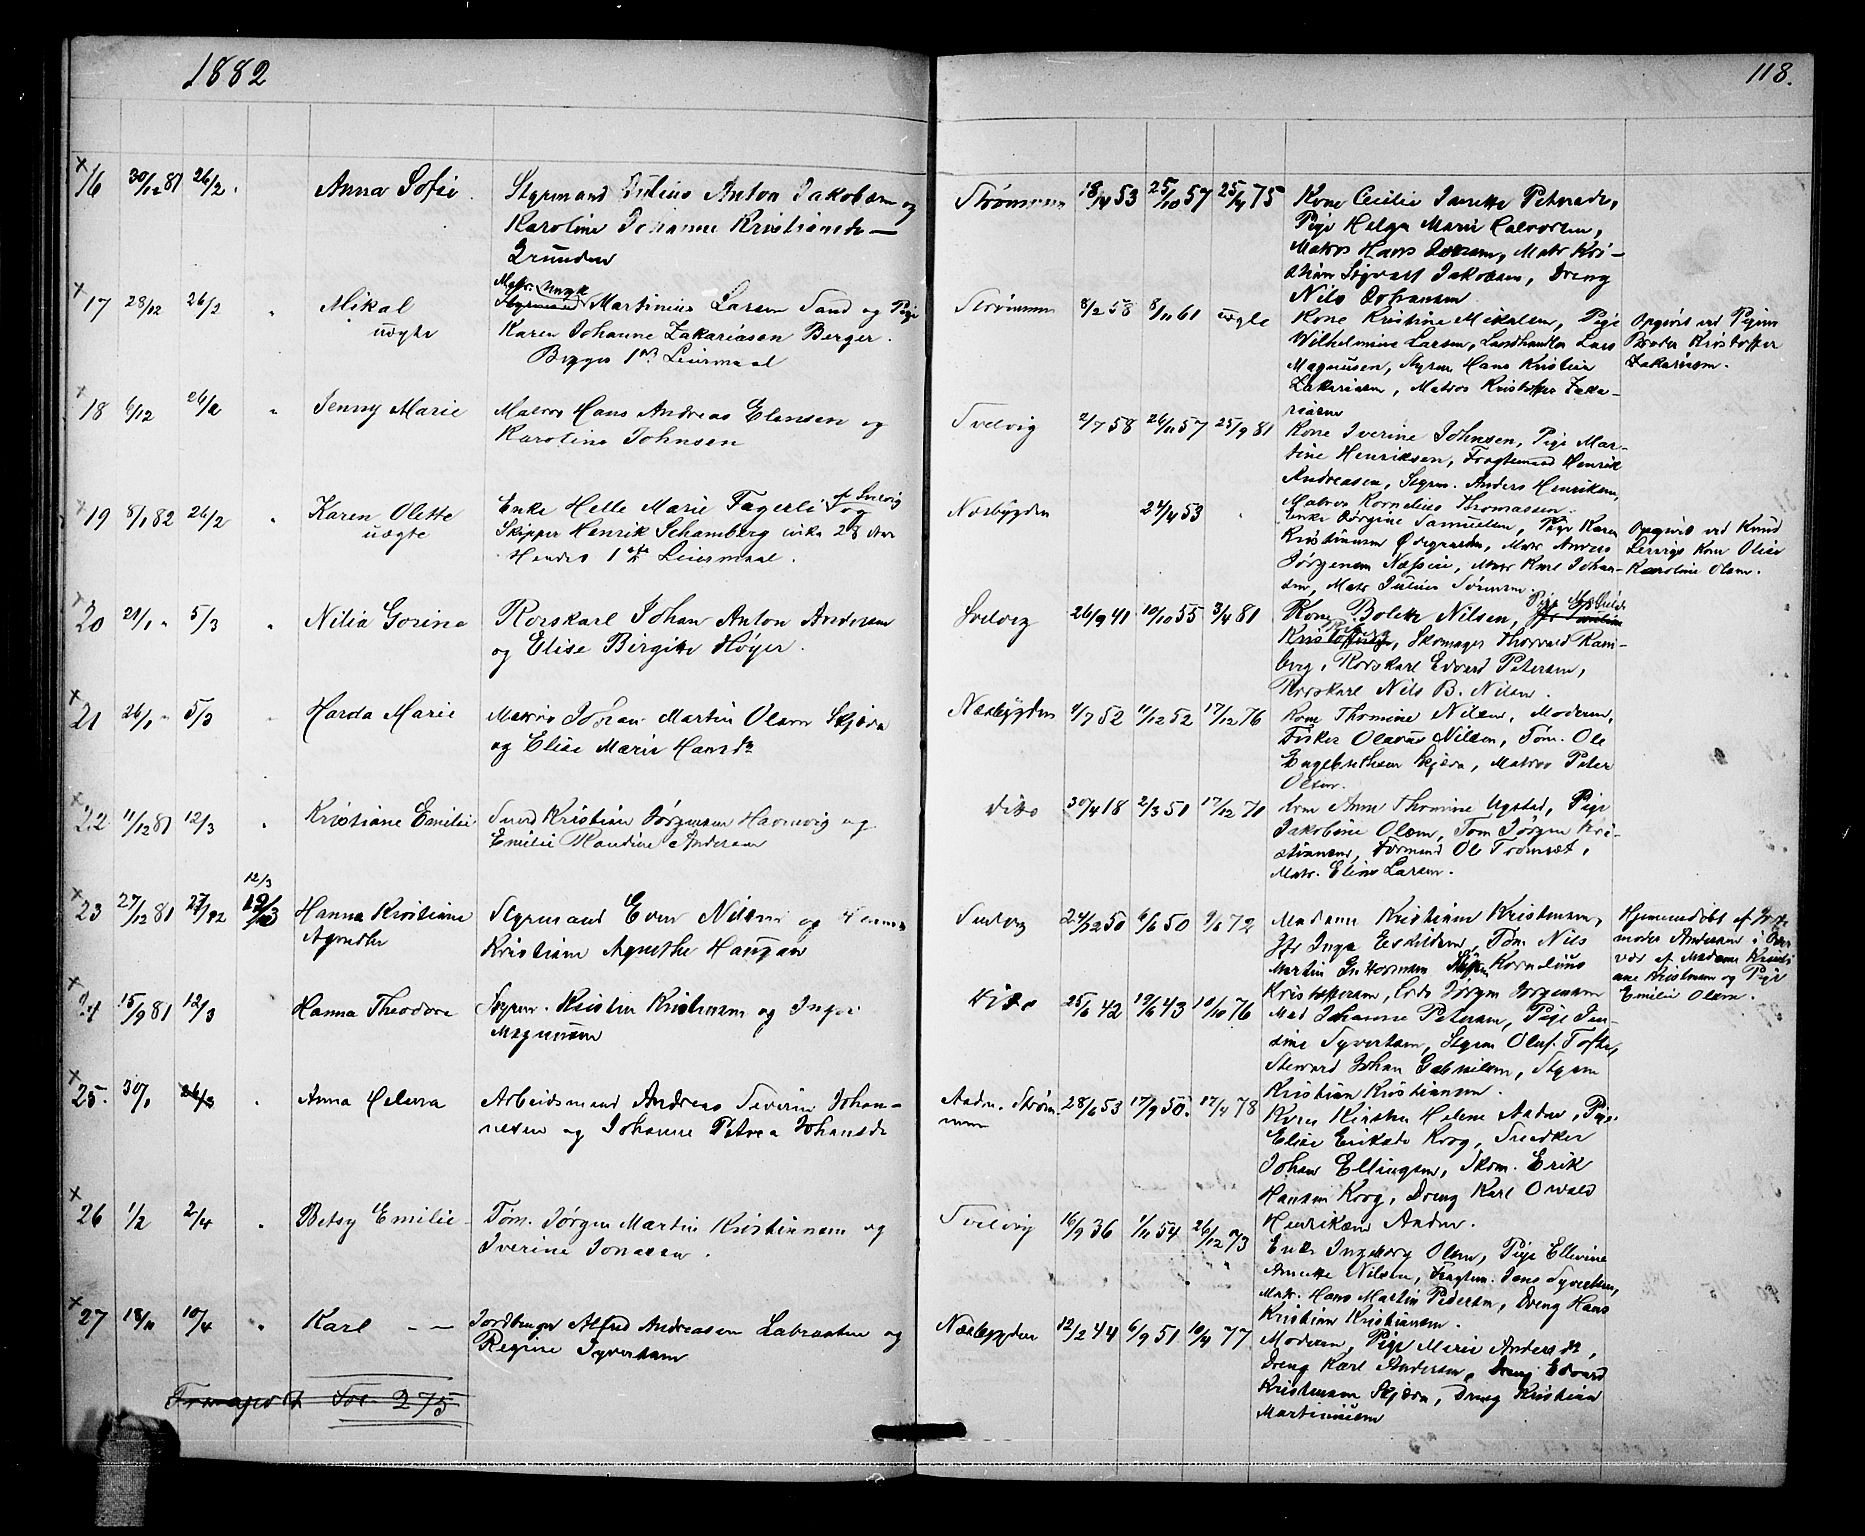 1882
118.
16 30/12 81 26/2 Anna Sofie Styrmand Julius Anton Jakobsen og
Karoline Johanne Kristiansdr —
Grunden
Strømmen 18/4 53 25/10 57 25/4 75 Kone Cecilie Petersdr,
Pige Helga Marie Halvorsen,
Matros Hans Matr Kri-
stian Sigvart Jakobsen, Dreng
Nils Johansen
17 28/12 26/2 Mikal
uægte
Matr. Ungk
Styrmand Martinius Larsen Sand og Pige
Karen Johanne Zakariasen Berger.
Begges 1ste Leiermaal
Strømmen 8/2 58 8/11 61 uægte Kone Kristine Mikalsen, Pige
Wilhelmine Larsen, Landhandler Lars
Magnusen, Styrm Hans Kristian
Zakariasen, Matros Kristoffer Zaka-
riasen
Opgivet ved Pigens
Broder Kristoffer
Zakariasen.
18 6/12 26/2 Jenny Marie Matros Hans Andreas Elensen og
Karoline Johnsen
Svelvig 2/7 58 26/11 57 25/9 81 Kone Iverine Johnsen, Pige Mar-
tine Henriksen, Fragtemand Henrik
Andreasen, Styrm. Anders Henriksen,
Matros Kornelius Thomassen.
19 8/1 82 26/2 Karen Olette
uægte
Enke Helle Marie Fagerli af Svelvig og
Skipper Henrik Schamberg cirka 28 Aar
Hendes 1ste Leiermaal.
Næsbygden 24/4 53 Enke Jørgine Samuelsen, Pige Karen
Kristiansen Ødegaarden, Matr. Anders
Jørgensen Næssene, Matr Karl Johan-
sen, Matr Julius Sørensen
Opgivet ved Knud
Kone Olise
Karoline Olsen.
20 21/1 5/3 Nilia Gorine Rorskarl Johan Anton Andersen
og Elise Birgitte Høyer.
Svelvig 26/9 41 10/10 55 3/4 81 Kone Bolette Nilsen, Pige
Skomager Thorvald Ram-
berg, Rorskarl Edvard Petersen,
Rorskarl Nils B. Nilsen.
21 26/1 5/3 Harda Marie Matros Johan Martin Olsen Skjæra
og Elise Marie Hansdr
Næsbygden 1/7 52 11/12 52 17/12 76 Kone Thomine Nilsen, Moderen,
Fisker Olavus Nilsen, Tøm. Ole
Engebrethsen Skjæra, Matros Peter
Olsen.
22 11/12 81 12/3 Kristiane Emilie Smed Kristian Jørgensen Havnevig og
Emilie Randine Andersen
Dito 30/4 18 2/3 51 17/12 71 Kone Anne Thomine Ugstad, Pige
Jakobine Olsen, Tøm Jørgen Kri-
stiansen, Formand Ole Tromsæt,
Matr. Elias Larsen.
23 27/12 81 27/12 12/3 Hanna Kristiane
Agnethe
Styrmand Even Nilsen og Hanna
Kristiane Agnethe Haugan
Svelvig 24/12 50 6/6 50 9/6 72 Madame Kristiane Kristensen,
Jfr Inga Eskildsen, Tøm. Nils
Martin Guttormsen Kornelius
Kristoffersen, Lods Jørgen Jørgensen
Hjemmedøbt af Jorde-
moder Andersen i Over-
vær af Madame Kristi-
ane Kristensen og Pige
Emilie Olsen.
24 15/9 81 12/3 Hanna Theodora Styrm. Kristian Kristensen og Inger
Magnusen
Dito 25/6 42 19/6 43 10/10 76 Mad Johanne Petersen, Pige Jen-
sine Syvertsen, Styrm Oluf Tofte,
Steward Johan Gabrielsen, Styrm
Kristian Kristiansen.
25. 30/1 26/3 Anna Helena Arbeidsmand Andreas Severin Johan-
nesen og Johanne Petrea Johansdr
Aadn. Strøm-
men
28/6 53 17/9 50. 17/4 78 Kone Kirsten Helene Aadne, Pige
Elise Eriksdr Krog, Snedker
Johan Ellingsen, Skom. Erik
Hansen Krog, Dreng Karl Osvald
Henriksen Aadne.
26 1/2 2/4 Betsy Emilie Tøm. Jørgen Martin Kristiansen og
Iverine Jonassen.
Svelvig 16/9 36 1/11 54 26/12 73 Enke Ingeborg Olsen, Pige Ellevine
Anette Nilsen, Fragtem. Jens Syvertsen,
Matr. Hans Martin Pedersen, Dreng Hans
Kristian Kristiansen.
27 18/11 10/4 Karl — — Jordbruger Alfred Andreasen Labraaten og
Regine Syvertsen
Næsbygden 12/2 44 6/9 51 10/4 77 Moderen, Pige Marie Andersdr,
Dreng Karl Andersen, Dreng Edvard
Kristensen Skjæra, Dreng Kristian
Martiniusen
Transport 275